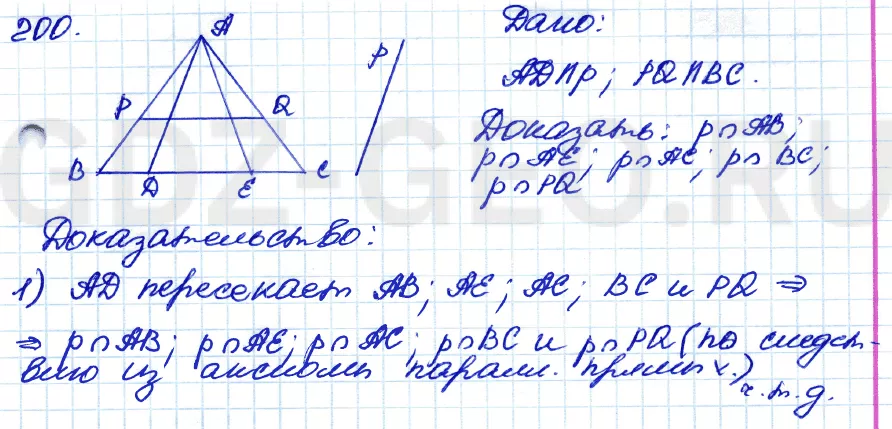 200.
A
P
Q
B
D
E
C
p
Дано:
AD∥p; PQ∥BC.
Доказать: p∩AB;
p∩AE; p∩AC; p∩BC;
p∩PQ
Доказательство:
1) AD пересекает AB; AE; AC; BC и PQ ⇒
⇒ p∩AB; p∩AE; p∩AC; p∩BC и p∩PQ (по следст-
вию из аксиомы паралл. прямых.)
ч.т.д.
GDZ-GEO.RU